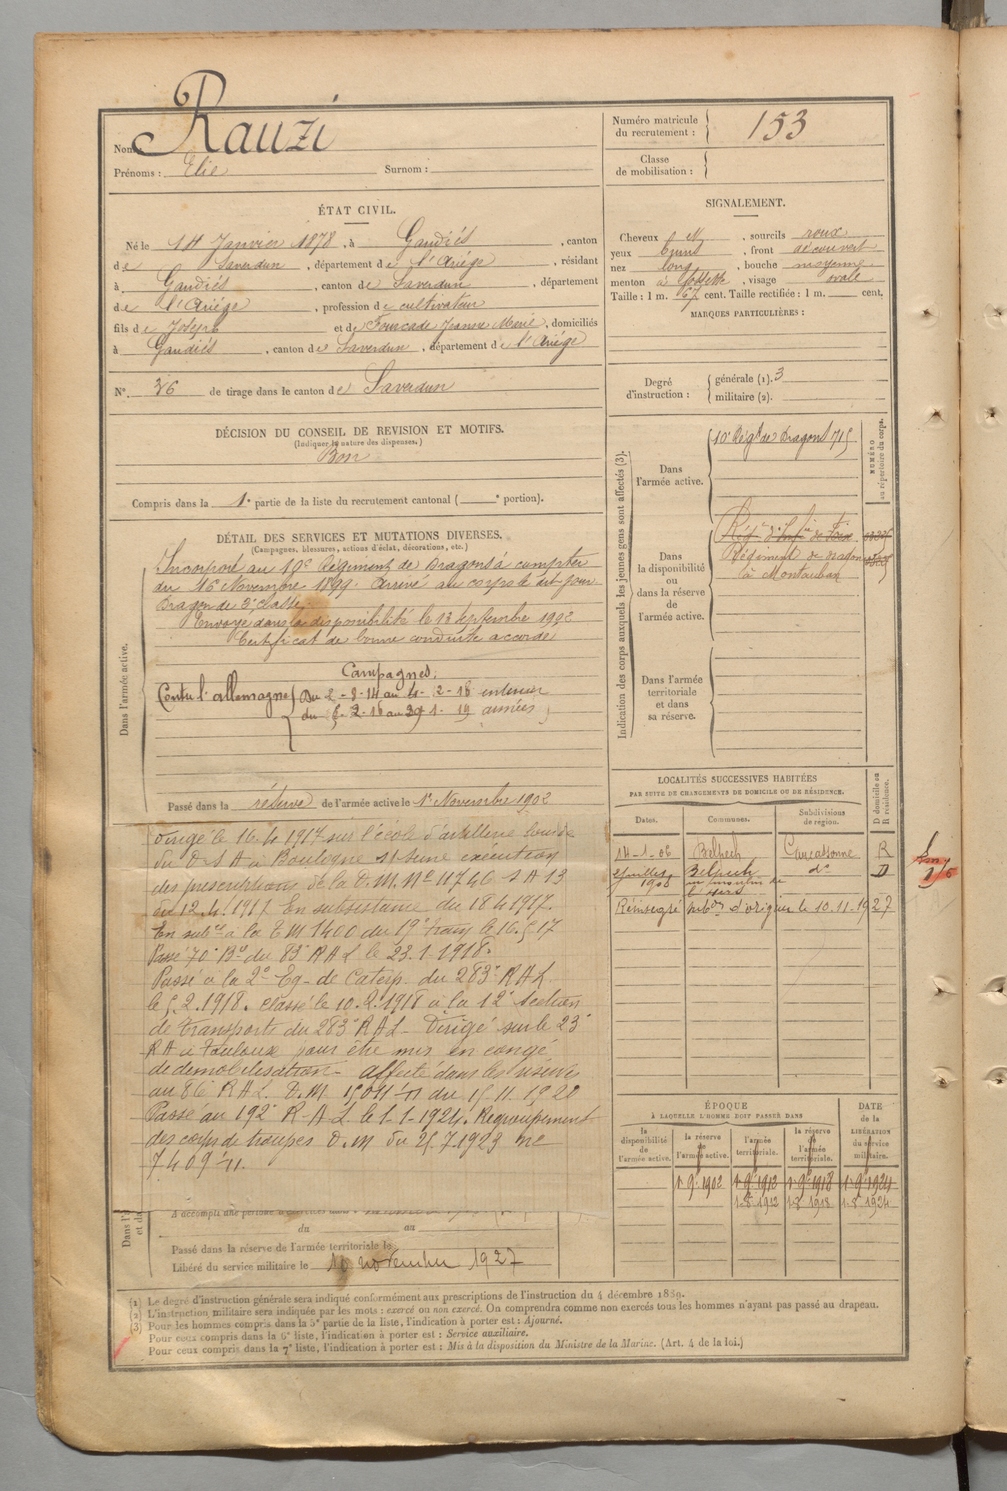 Nom: Rauzi
Prénoms: Elie Surnom:
Numéro matricule du recrutement: 153
Classe de mobilisation:
ÉTAT CIVIL.
Né le 14 Janvier 1878, à Gaudiés, canton
de Saverdun, département de l'Ariége, résidant
à Gaudiés, canton de Saverdun, département
de l'Ariége, profession de cultivateur
fils de Joseph et de Fourcade Jeanne Marie, domiciliés
à Gaudiés, canton de Saverdun, département de l'Ariége
N° 36 de tirage dans le canton de Saverdun
SIGNALEMENT.
Cheveux, sourcils roux
yeux bruns, front découvert
nez long, bouche moyenne
menton à fossette, visage ovale
Taille: 1 m. 67 cent. Taille rectifiée: 1 m. cent,
MARQUES PARTICULIÈRES:
Degré d'instruction: générale (1). 3
militaire (2).
DÉCISION DU CONSEIL DE REVISION ET MOTIFS.
(Indiquer la nature des dispenses.)
Bon
Compris dans la 1e partie de la liste du recrutement cantonal ( e portion).
DÉTAIL DES SERVICES ET MUTATIONS DIVERSES.
(Campagnes, blessures, actions d'éclat, décorations, etc.)
Dans l'armée active.
Incorporé au 10e Régiment de Dragons à compter
du 16 Novembre 1899. Arrivé au corps le dit jour
Dragon de 2e classe.
Envoyé dans la disponibilité le 13 septembre 1902
Certificat de bonne conduite accordé
Campagnes:
Contre l'allemagne du 2-8-14 au 4-2-18 intérieur
du 5-2-18 au 29-1-19 armées
Passé dans la réserve de l'armée active le 1er Novembre 1902
Dirigé le 16.4.1917 sur l'école d'artillerie lourde
du D.S.A à Boulogne s/ Seine exécution
des prescriptions de la D.M. No 11746 1 A 13
du 12.4.1917. En subsistance du 18 4 1917.
En subce à la T.M 1400 du 19e train le 16.5.17
Passé 70e Bie du 83e RAL le 23.1.1918.
Passé a la 2e Eq. de Caterp. du 283e RAL
le 5.2.1918. Classé le 10.2.1918 à la 12e Section
de transports du 283e RAL. Dirigé sur le 23e
RA à Toulouse pour être mis en congé
de démobilisation - affecté dans les réserves
au 86e RAL. D.M 15011-11 du 15.11.1920
Passé au 192e R.A.L le 1-1-1924. Regroupement
des corps de troupes D.M du 25.7.1923 ne
7409-11.
A accompli une période d'exercices dans
du au
Passé dans la réserve de l'armée territoriale le
Libéré du service militaire le 10 novembre 1927
Indication des corps auxquels les jeunes gens sont affectés (3).
Dans l'armée active.
10e Régt de Dragons 715
NUMÉRO au répertoire du corps.
Dans la disponibilité ou dans la réserve de l'armée active.
Régt d'Infie de Foix
Régiment de dragons
à Montauban
Dans l'armée territoriale et dans sa réserve.
LOCALITÉS SUCCESSIVES HABITÉES
PAR SUITE DE CHANGEMENTS DE DOMICILE OU DE RÉSIDENCE.
Dates. Communes. Subdivisions de région. D domicile ou R résidence.
14-1-06 Belpech Carcassonne R
Juillet 1908 Belpech do D
Réintégré subdon d'origine le 10.11.1927
ÉPOQUE
À LAQUELLE L'HOMME DOIT PASSER DANS
la disponibilité de l'armée active. la réserve de l'armée active. l'armée territoriale. la réserve de l'armée territoriale. DATE de la LIBÉRATION du service militaire.
1 9e 1902 1 9e 1912 1 9e 1918 1 9e 1924
1.8e 1912 1.8 1918 1.8e 1924
(1) Le degré d'instruction générale sera indiqué conformément aux prescriptions de l'instruction du 4 décembre 1889.
(2) L'instruction militaire sera indiquée par les mots: exercé ou non exercé. On comprendra comme non exercés tous les hommes n'ayant pas passé au drapeau.
(3) Pour les hommes compris dans la 5e partie de la liste, l'indication à porter est: Ajourné.
Pour ceux compris dans la 6e liste, l'indication à porter est: Service auxiliaire.
Pour ceux compris dans la 7e liste, l'indication à porter est: Mis à la disposition du Ministre de la Marine. (Art. 4 de la loi.)